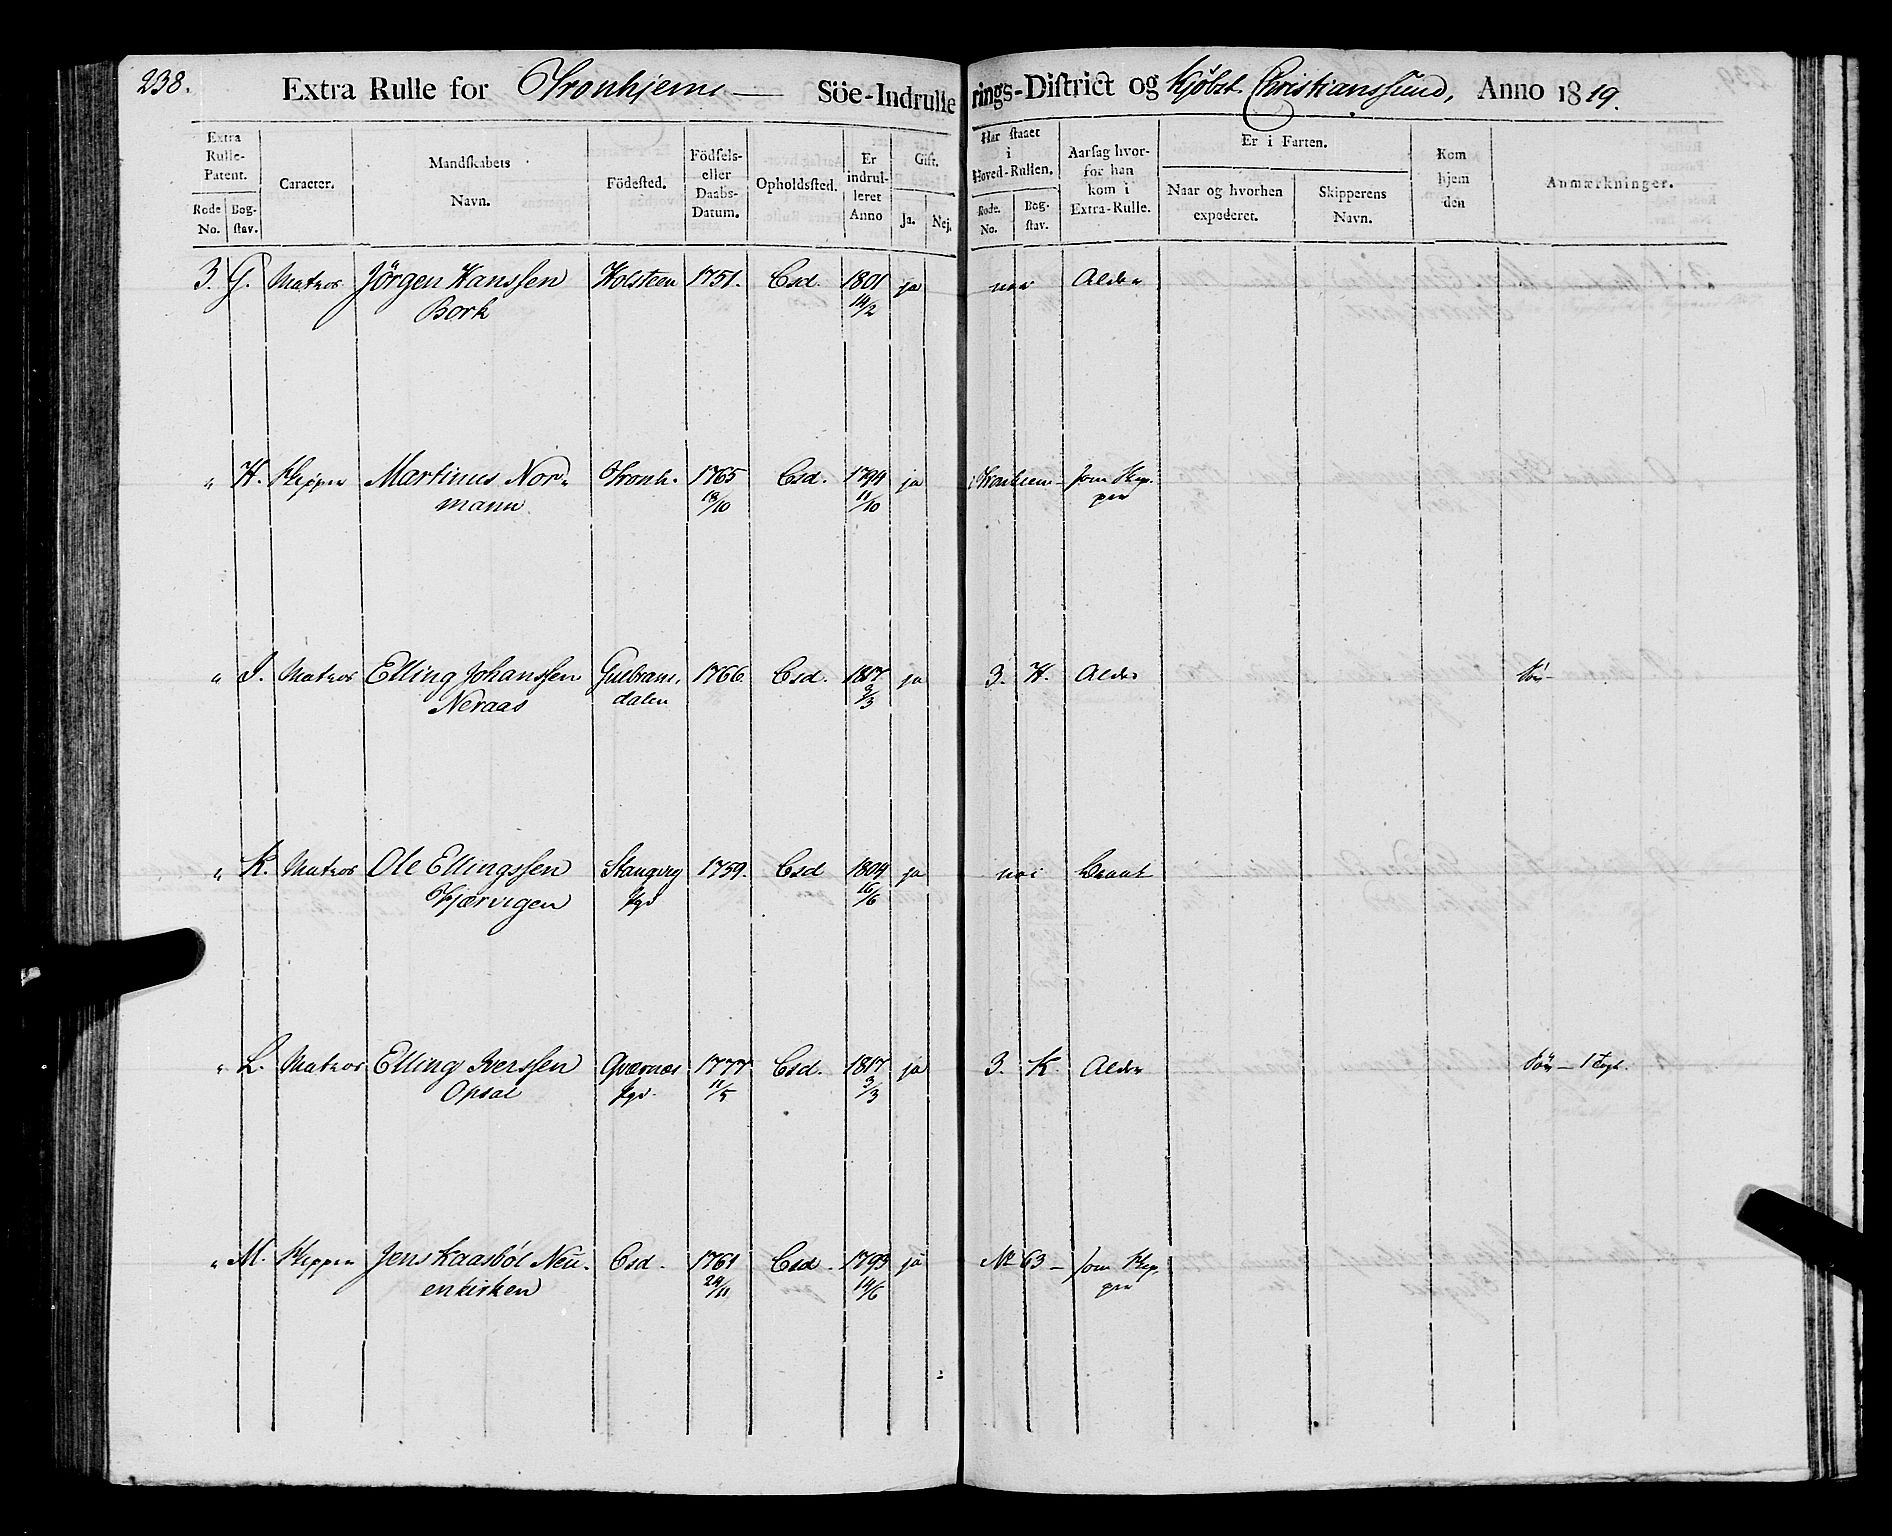 238.
Extra Rulle for Tronhjems — Söe-Indrullerings-District og Kjöbst. Christianssund, Anno 1819.
Extra Rulle-Patent. Caracter. Mandskabets Navn. Födested. Födsels- eller Daabs-Datum. Opholdssted. Er indrulleret Anno Gift. Har staaet i Hoved-Rullen. Aarsag hvorfor han kom i Extra-Rulle. Er i Farten. Kom hjem den Anmærkninger.
Rode No. Bogstav. Ja. Nej. Rode. No. Bogstav. Naar og hvorhen expederet. Skipperens Navn.
3. G. Matros Jörgen Hanssen Holsteen 1751. Csd. 1801 ja nei Alder
Bork 14/2
" H. Skipper Martinus Nor- Tronh. 1765 Csd. 1794 ja som Skip-
mann 18/10 11/10 per
" I. Matros Elling Johanssen Gulbrans- 1766 Csd. 1817 ja 3. H. Alder
Neraas dalen 3/3
" K. Matros Ole Ellingssen Stangvig 1759. Csd 1804 ja nei
15/6
" L. Matros Elling Iverssen Qværnes 1777 Csd. 1817 ja 3. K. Alder
Opsal 11/5 3/3
" M. Skipper Jens Kaasböl Neu- Csd. 1761 Csd. 1793 ja No 63 — som Skip-
enkirken 24/11 14/6 per